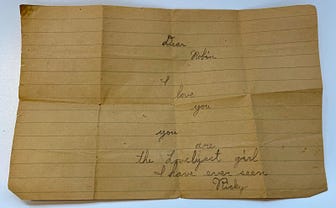 Dear
Robin
I
love
you
you
are
the Lovelyest girl
I have ever seen
Ricky